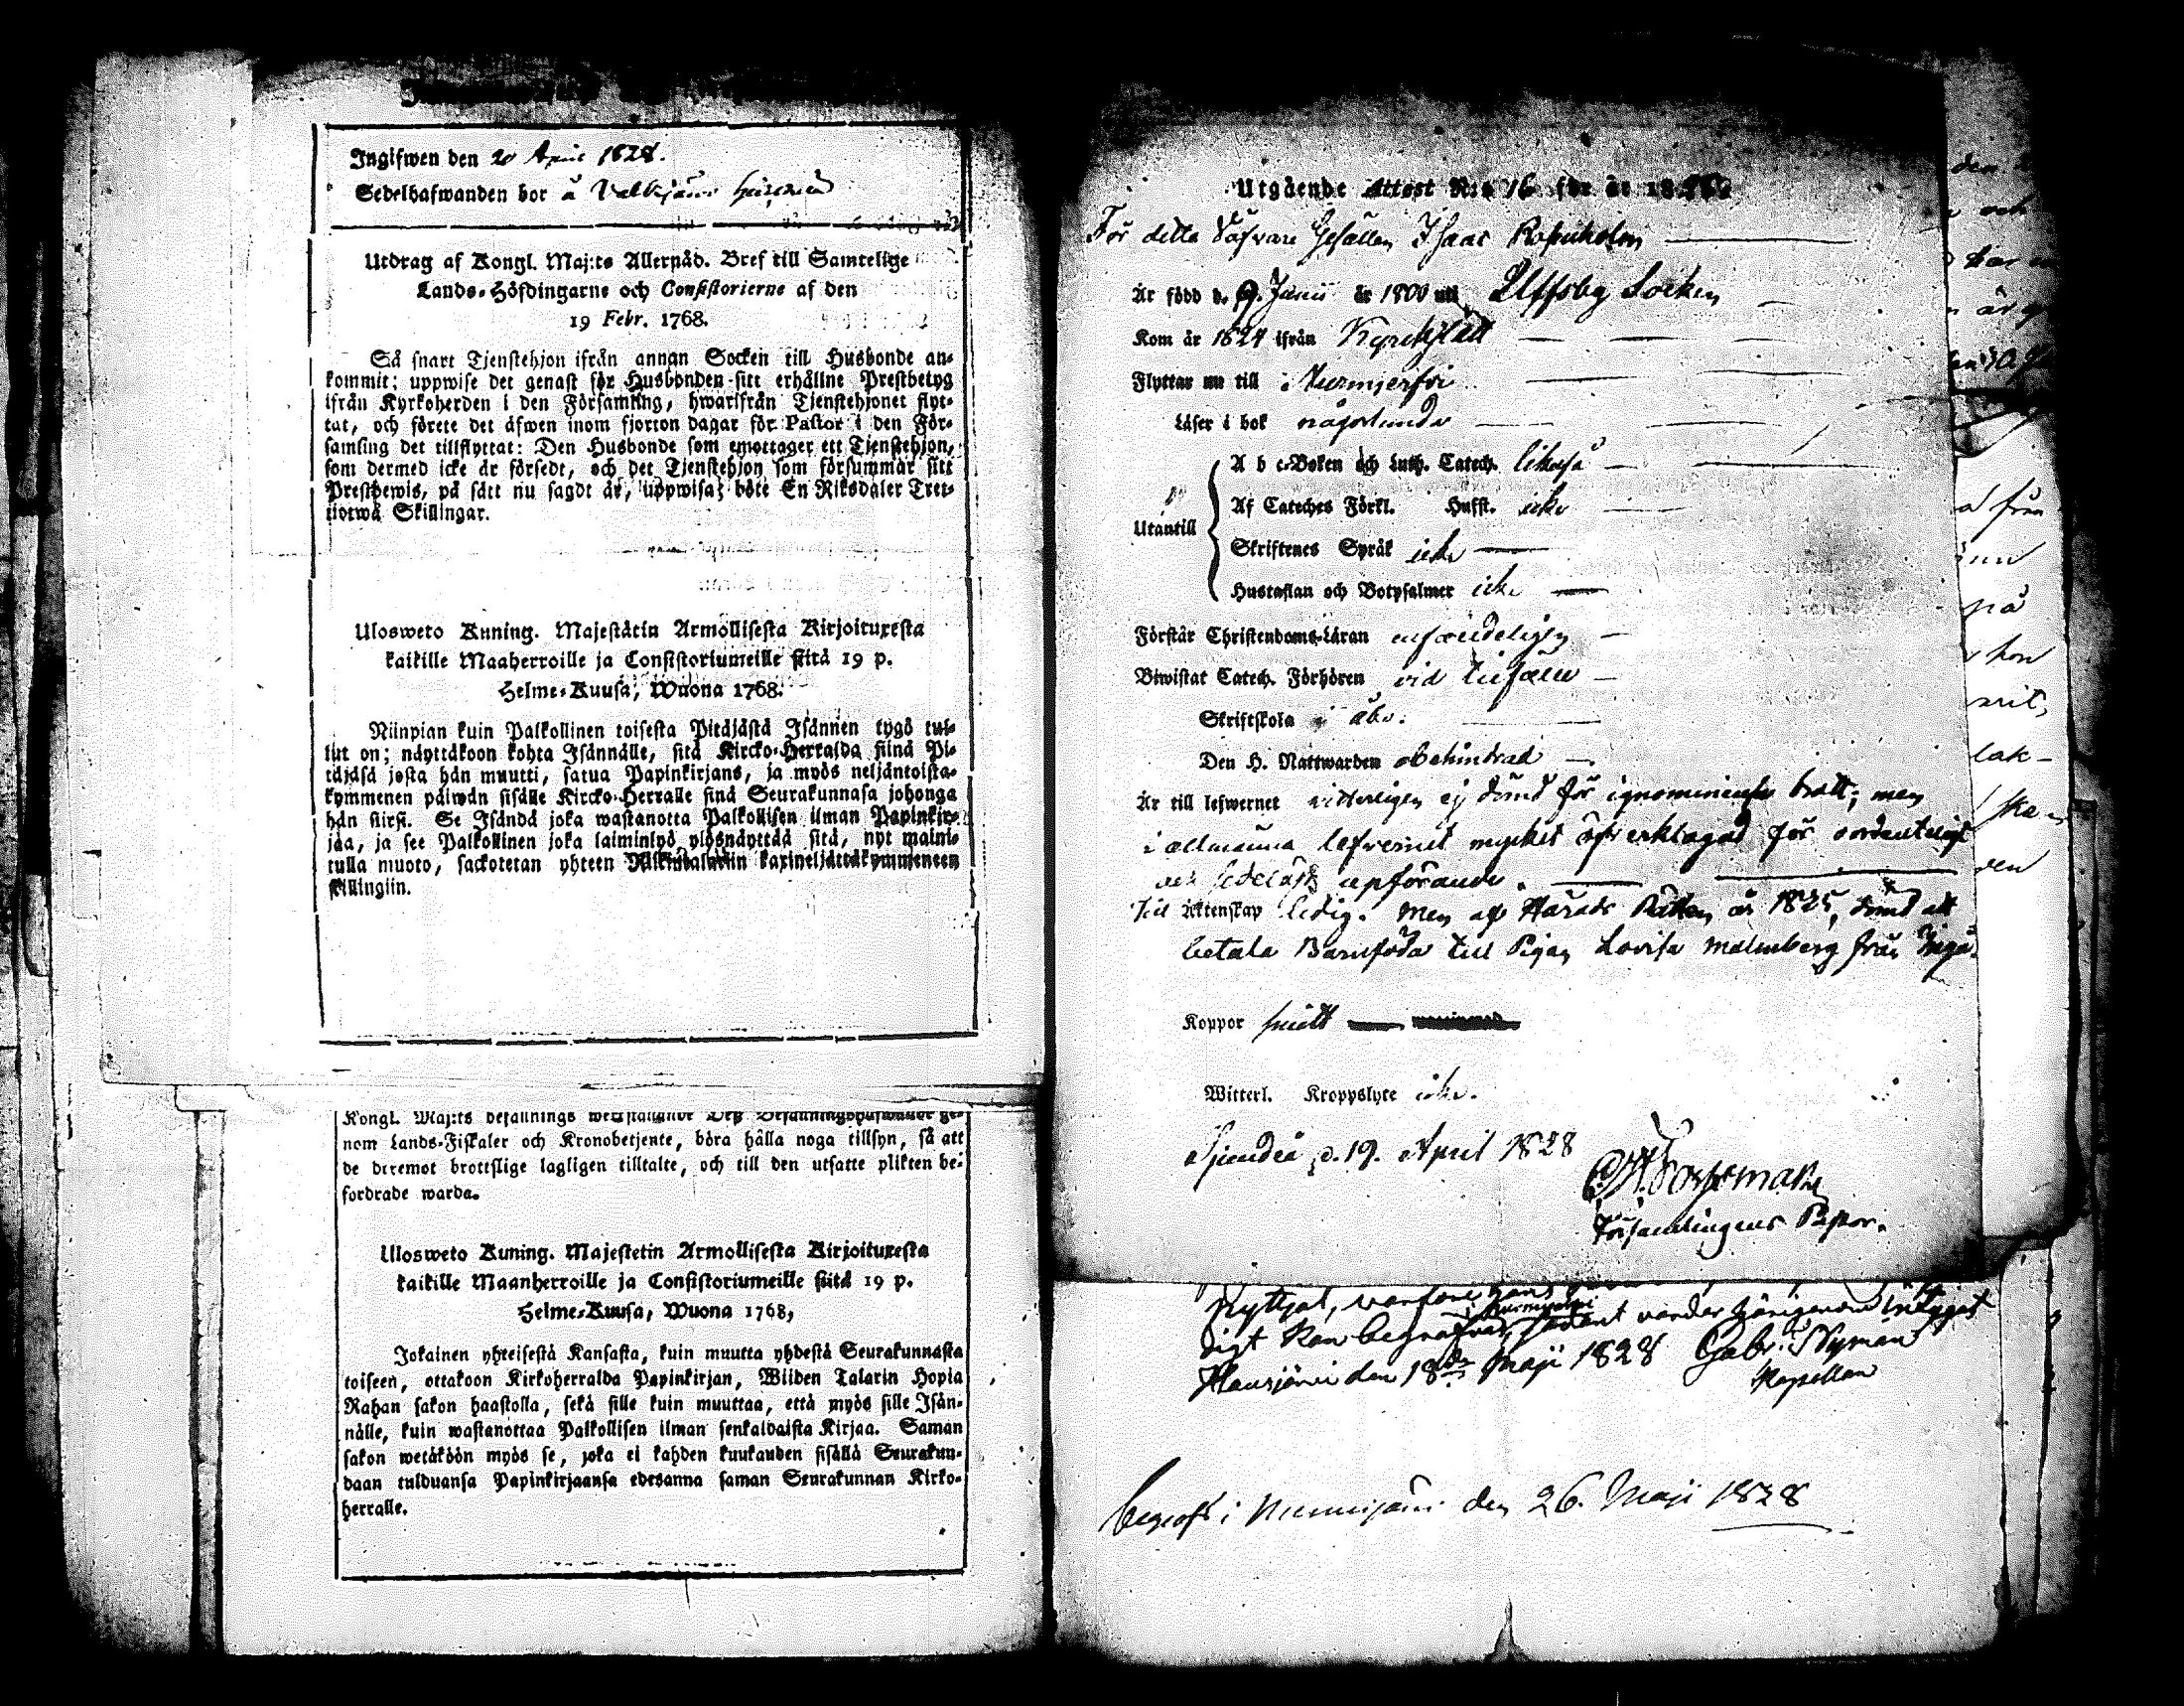 Ingifwen den 20 April 1828.
Sedelhafwanden bor å
Utdrag af Kongl. Maj:ts Allernåd. Bref till Samtelige
Lands-Höfdingarne och Consistorierne af den
19 Febr. 1768.
Så snart Tjenstehjon ifrån annan Socken till Husbonde an-
kommit; uppwise det genast för Husbonden sitt erhållne Prestbetyg
ifrån Kyrkoherden i den Församling, hwarifrån Tjenstehjonet flyt-
tat, och förete det äfwen inom fjorton dagar för Pastor i den För-
samling det tillflyttat: Den Husbonde som emottager ett Tjenstehjon,
som dermed icke är försedt, och det Tjenstehjon som försummar sitt
Prestbewis, på sätt nu sagdt är, uppwisa; böte En Riksdaler Tret-
tiotwå Skillingar.
Ulosweto Kuning. Majestätin Armollisesta Kirjoituxesta
kaikille Maaherroille ja Consistoriumeille siitä 19 p.
Helme-Kuusa, Wuona 1768.
Niinpian kuin Palkollinen toisesta Pitäjästä Isännen tygö tul-
lut on; näyttäkoon kohta Isännälle, sitä Kircko-Herralda siinä Pi-
täjäsä josta hän muutti, saatua Papinkirjans, ja myös neljäntoista-
kymmenen päiwän sisälle Kircko-Herralle siinä Seurakunnasa johonga
hän siirsi. Se Isändä joka wastanotta Palkollisen ilman Papinkir-
jaa, ja see Palkollinen joka laiminlyö ylösnäyttää sitä, nyt maini-
tulla muoto, sackotetan yhteen Riikintalariin kaxineljättäkymmeneen
skillingiin.
Kongl. Maj:ts befallnings
nom Lands-Fiskaler och Kronobetjente, böra hålla noga tillsyn, så att
de deremot brottslige lagligen tilltalte, och till den utsatte plikten be-
fordrade warda.
Ulosweto Kuning. Majestetin Armollisesta Kirjoituxesta
kaikille Maanherroille ja Consistoriumeille siitä 19 p.
Helme-Kuusa, Wuona 1768,
Jokainen yhteisestä Kansasta, kuin muutta yhdestä Seurakunnasta
toiseen, ottakoon Kirkoherralda Papinkirjan, Wiiden Talarin Hopia
Rahan sakon haastolla, sekä sille kuin muuttaa, että myös sille Isän-
nälle, kuin wastanottaa Palkollisen ilman senkaldaista Kirjaa. Saman
sakon wetäköön myös se, joka ei kahden kuukauden sisällä Seurakun-
daan tulduansa Papinkirjaansa edesanna saman Seurakunnan Kirko-
herralle.
Utgående Attest N:o 16 för år 18
För detta Gesällen Isaac
Är född d. 9. Junii år 1800 uti Ulfsby Socken
Kom år 1824 ifrån Kyrckslätt
Flyttar nu till Nurmijerfvi
Läser i bok någorlunda
A b c-Boken och Luth. Catech. likaså
Utantill
Af Cateches Förkl. Hufst. icke
Skriftenes Språk icke
Hustaflan och Botpsalmer icke
Förstår Christendoms-Läran enfaldeligen
Biwistat Catech. Förhören vid tilfälle
Skriftskola i Åbo.
Den H. Nattwarden obehindrad
Är till lefwernet vitterligen ej dömd för ignominieuse brott; men
i allmänna lefvernet mycket öfverklagad för oordenteligt
och upförande.
Till Äktenskap ledig. Men af Härads Rätten år 1825, dömd att
betala Barnföda till Pigan Lovisa Malmberg från Ingå.
Koppor haft
Witterl. Kroppslyte icke.
Sjundeå d. 19. April 1828
Församlingens Pastor.
flyttjat, varföre hans
i Nurmijervi
digt kan begrafvas, sådant varder härigenom intygat
Hausjärvi den 18de Maji 1828 Gabr. Nyman
Kapellan
begrofs i Nurmijärvi den 26. Maji 1828